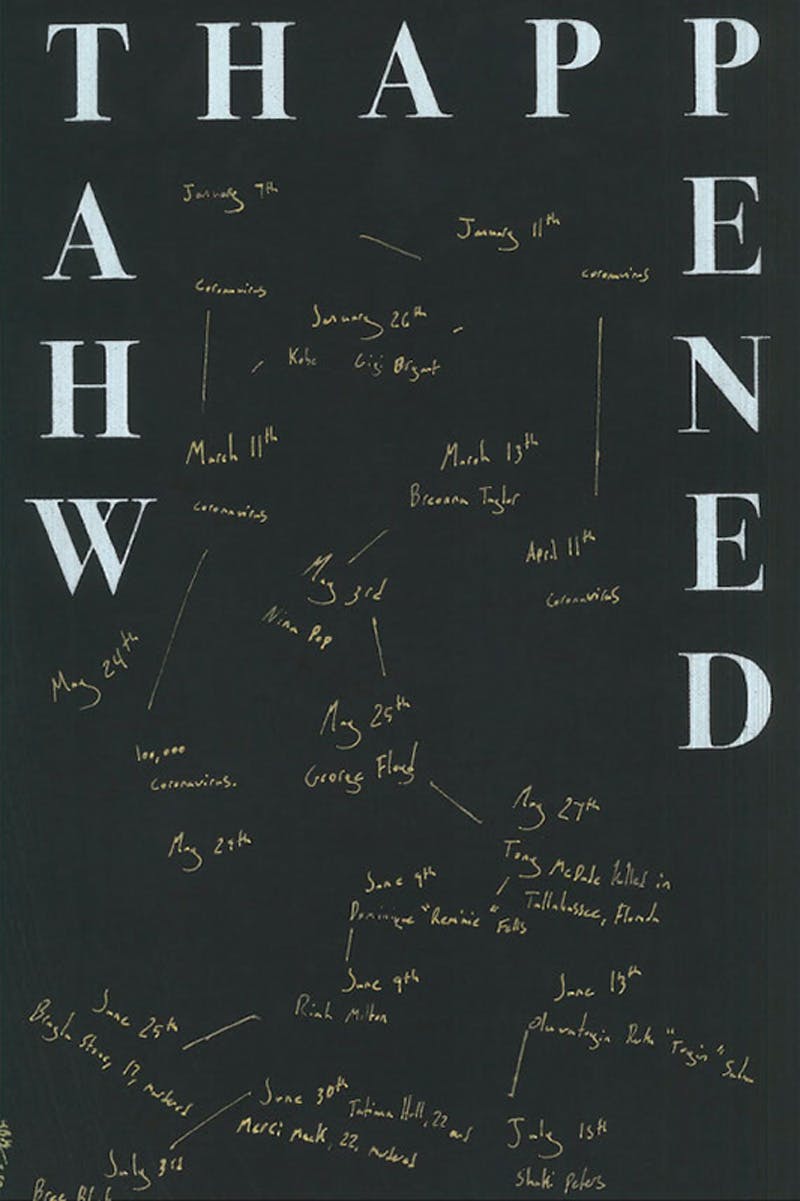 WHAT HAPPENED
January 7th
January 11th
coronavirus
coronavirus
January 26th
Kobe Gigi Bryant
March 11th
coronavirus
March 13th
Breonna Taylor
April 11th
coronavirus
May 3rd
Nina Pop
May 24th
100,000
coronavirus.
May 25th
George Floyd
May 27th
Tony McDade killed in
Tallahassee, Florida
May 29th
June 9th
Dominique "Remmie" Fells
June 9th
Riah Milton
June 13th
"Toyin"
June 25th
Brayla Stone, 17, murdered
June 30th
Tatiana Hall, 22 and
Merci Mack, 22, murdered
July 3rd
Bree Black
July 15th
Shaki Peters